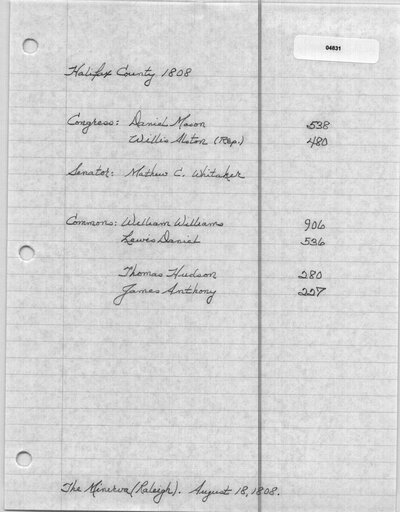 04831
Halifax County 1808
Congress: Daniel Mason 538
Willis Alston (Rep.) 480
Senator: Mathew C. Whitaker
Commons: William Williams 906
Lewis Daniel 536
Thomas Hudson 280
James Anthony 227
The Minerva (Raleigh). August 18, 1808.